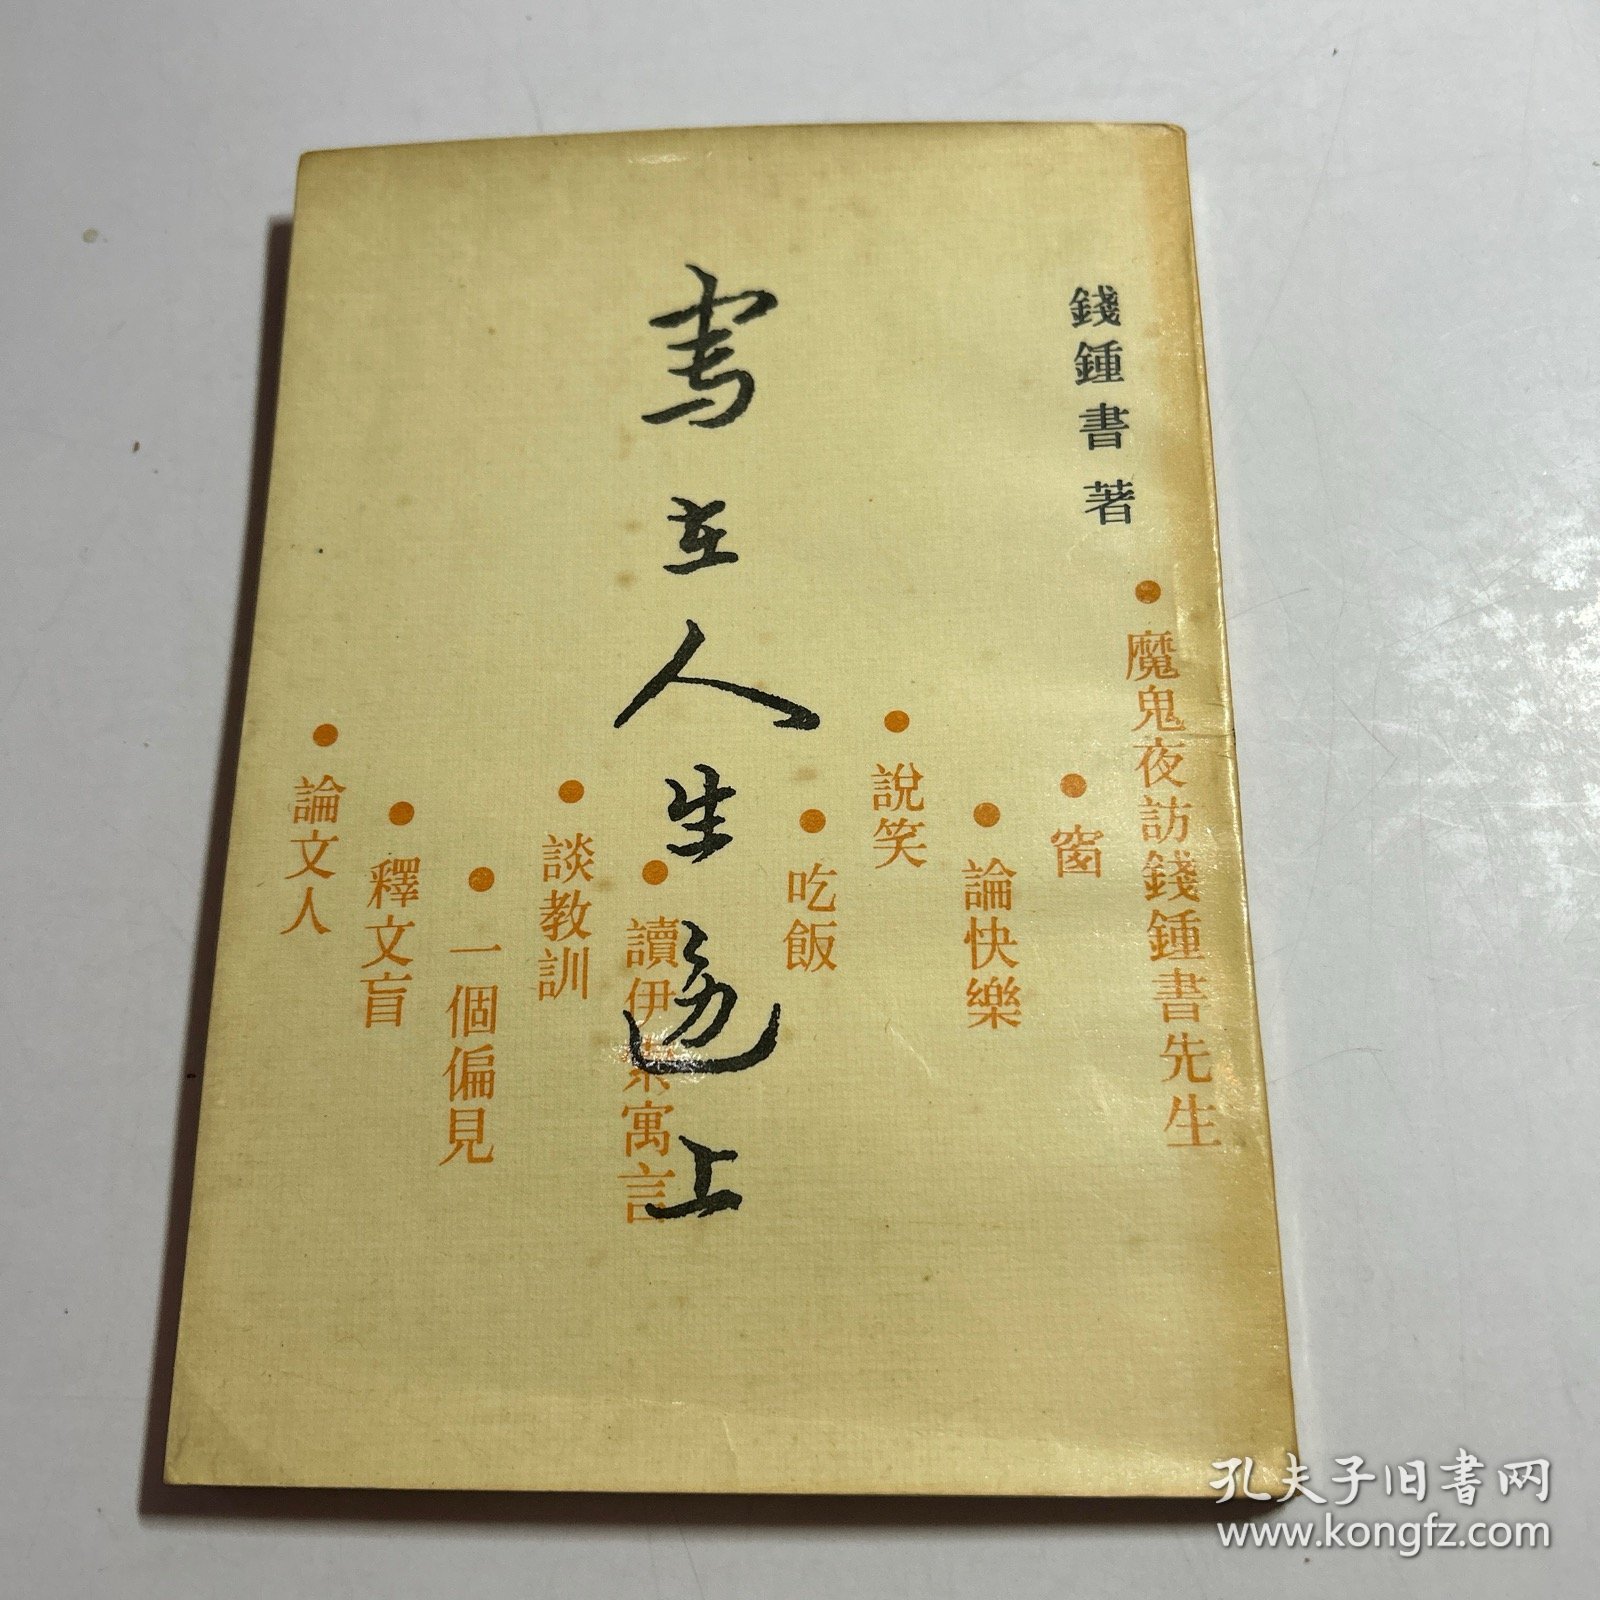 錢鍾書著
魔鬼夜訪錢鍾書先生
窗
論快樂
說笑
吃飯
寫在人生邊上
讀伊索寓言
談教訓
一個偏見
釋文盲
論文人
孔夫子旧书网
www.kongfz.com